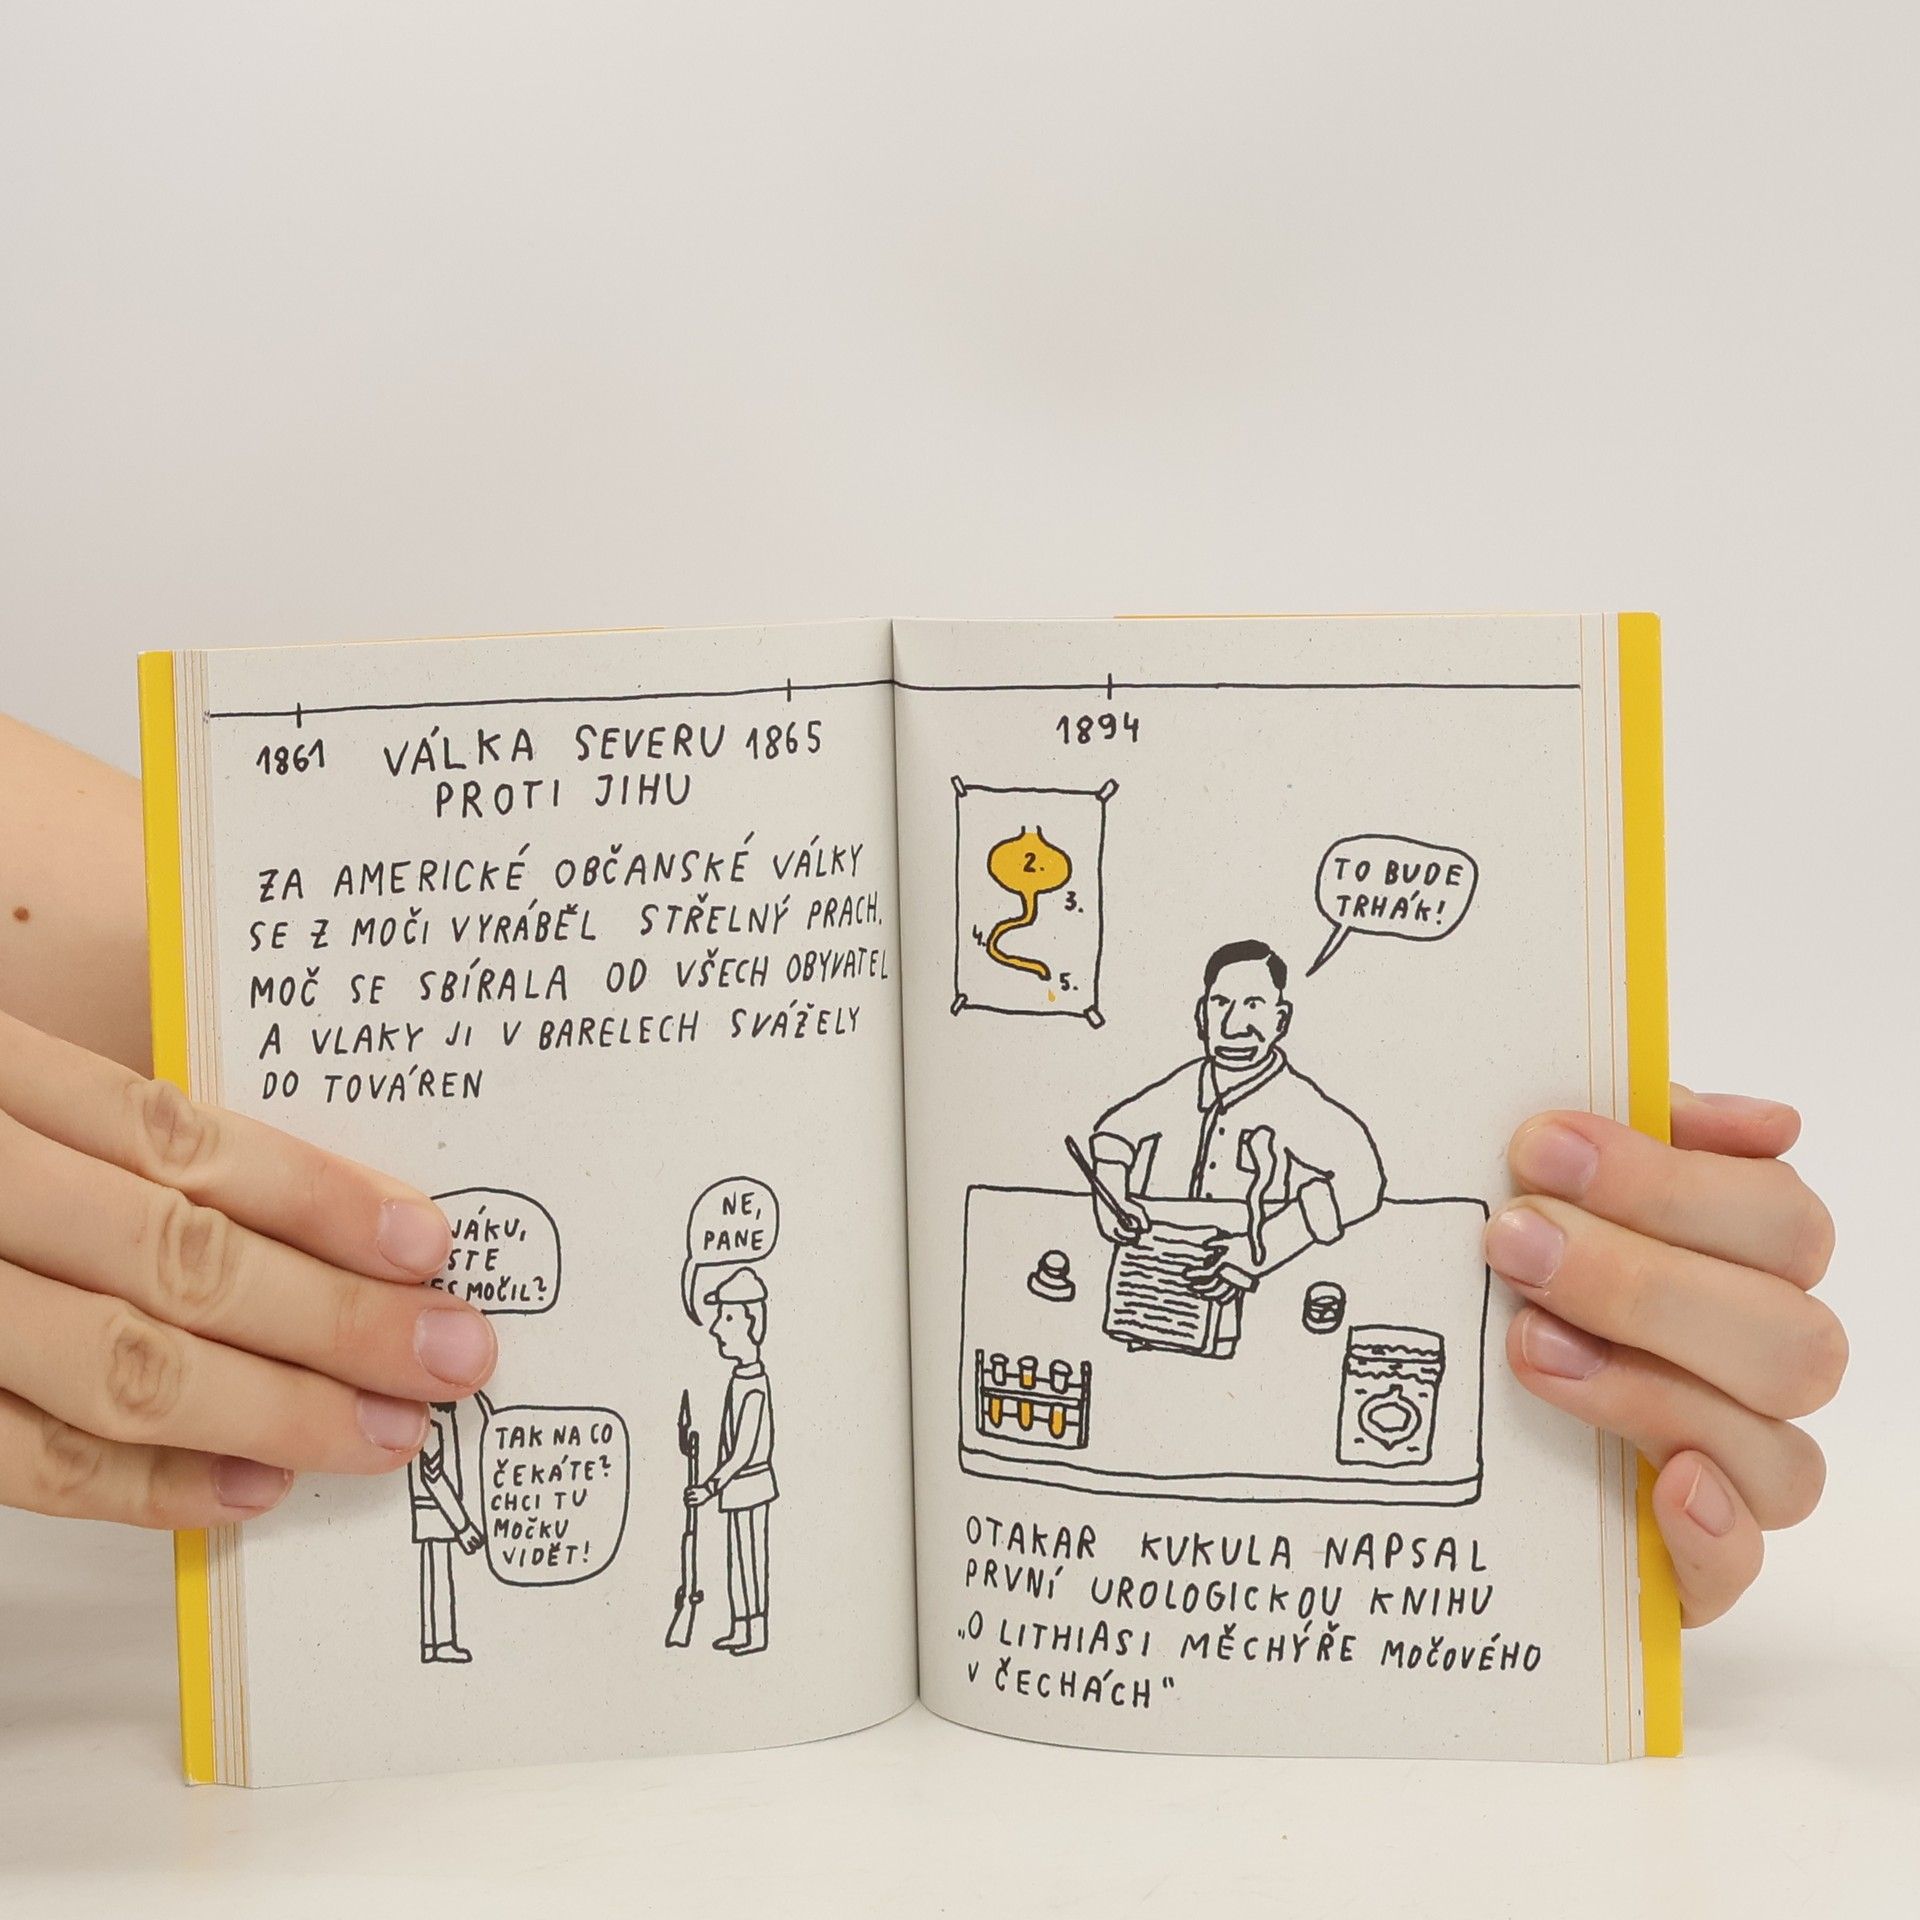 1861 VÁLKA SEVERU 1865
PROTI JIHU
ZA AMERICKÉ OBČANSKÉ VÁLKY
SE Z MOČI VYRÁBĚL STŘELNÝ PRACH.
MOČ SE SBÍRALA OD VŠECH OBYVATEL
A VLAKY JI V BARELECH SVÁŽELY
DO TOVÁREN
MOČIL?
NE,
PANE
TAK NA CO
ČEKÁTE?
CHCI TU
MOČKU
VIDĚT!
1894
2.
3.
4.
5.
TO BUDE
TRHÁK!
OTAKAR KUKULA NAPSAL
PRVNÍ UROLOGICKOU KNIHU
„O LITHIASI MĚCHÝŘE MOČOVÉHO
V ČECHÁCH"